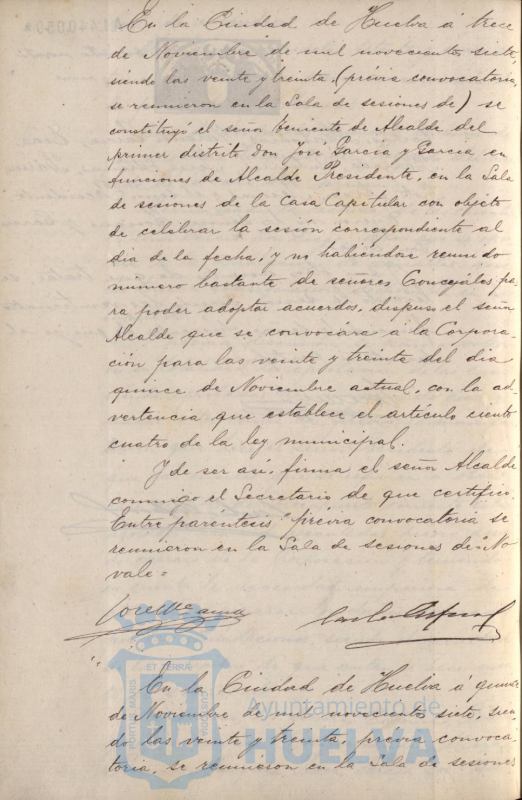 En la Ciudad de Huelva á trece
de Noviembre de mil novecientos siete,
siendo las veinte y treinta, (prévia convocatoria,
se reunieron en la Sala de sesiones de) se
constituyó el señor Teniente de Alcalde del
primer distrito Don José García y García en
funciones de Alcalde Presidente, en la Sala
de sesiones de la Casa Capitular con objeto
de celebrar la sesión correspondiente al
dia de la fecha, y no habiéndose reunido
número bastante de señores Concejales pa
ra poder adoptar acuerdos, dispuso el señor
Alcalde que se convocára á la Corpora-
ción para las veinte y treinta del dia
quince de Noviembre actual, con la ad-
vertencia que establece el artículo ciento
cuatro de la ley municipal.
Y de ser así, firma el señor Alcalde
conmigo el Secretario de que certifico.
Entre paréntesis "prévia convocatoria se
reunieron en la Sala de sesiones de" No
vale=
En la Ciudad de Huelva á quince
de Noviembre de mil novecientos siete, sien-
do las veinte y treinta, prévia convoca-
toria, se reunieron en la Sala de sesiones
PORTUS MARIS ET TERRÆ CUSTODIA
Ayuntamiento de
HUELVA